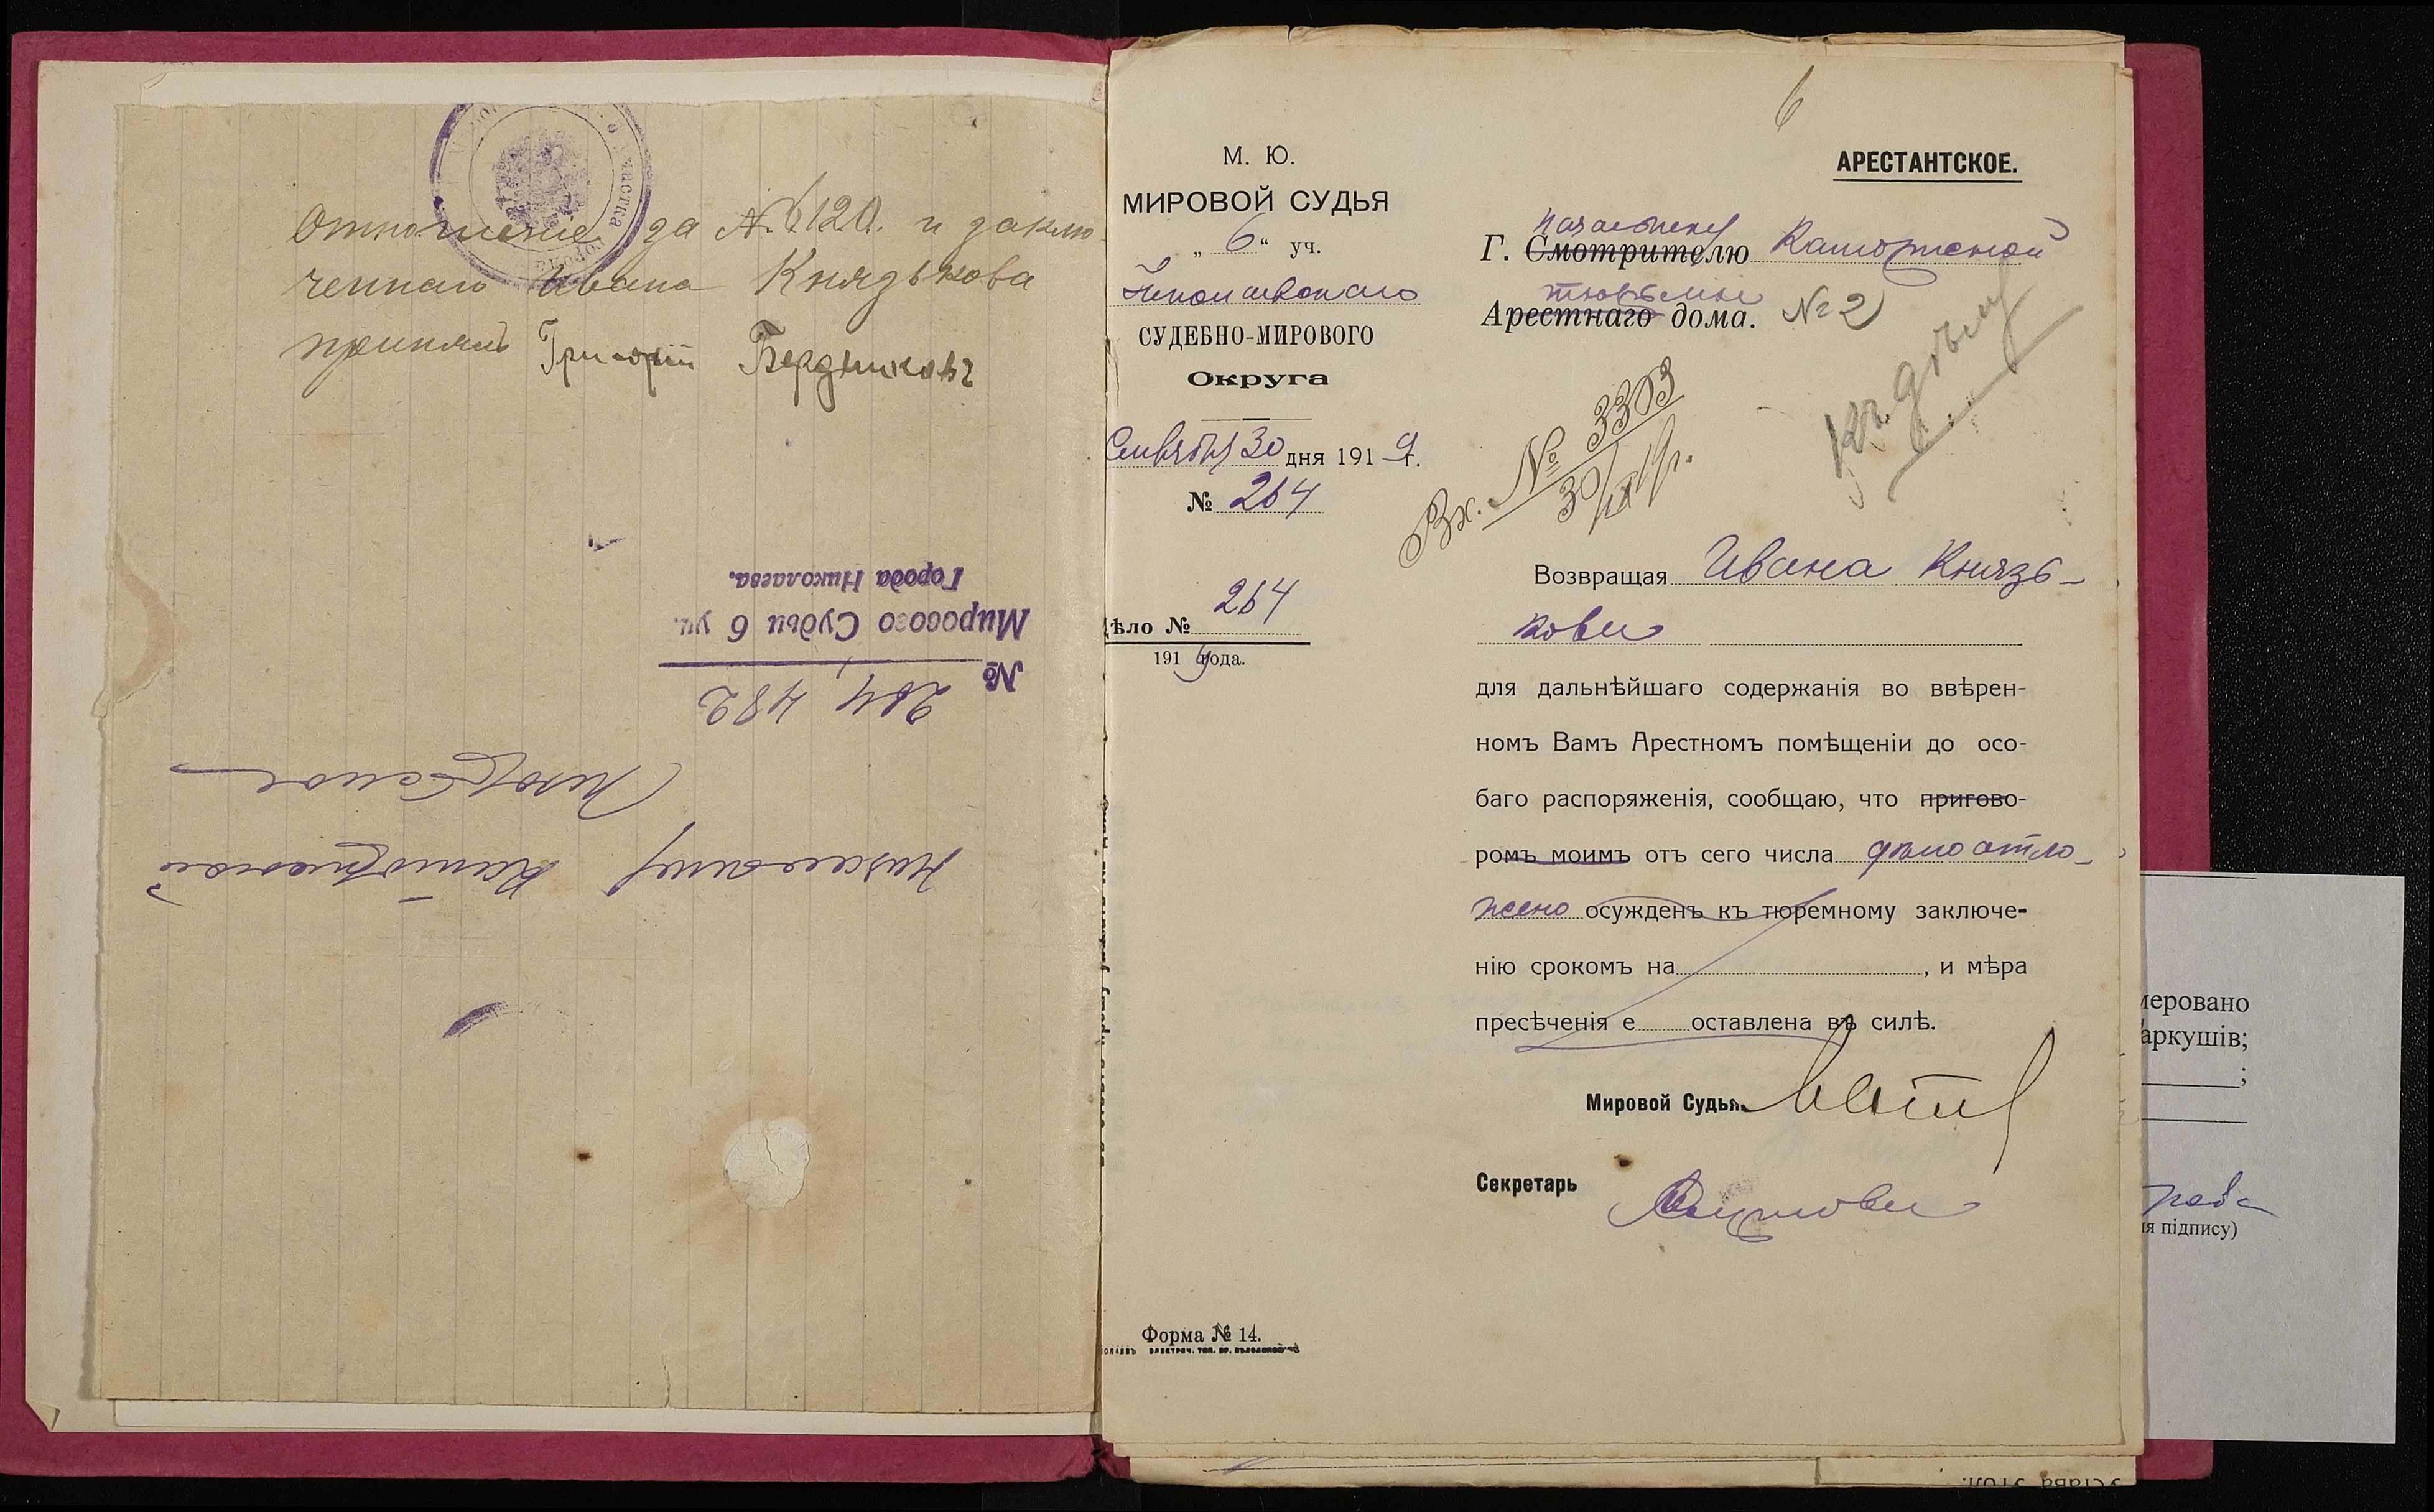 Отношеніе за №6120. и заклю-
ченнаго Ивана Князькова
принялъ Григорій Бердниковъ
участка
города
Города Николаева.
Мирового Судьи 6 уч.
№ 264, 482
Начальнику Каторжной
6
АРЕСТАНТСКОЕ.
М. Ю.
МИРОВОЙ СУДЬЯ
„ 6 “ уч.
Николаевскаго
СУДЕБНО-МИРОВОГО
Округа
Сентября 30 дня 1919 г.
№ 264
ѣло № 264
1919 года.
Начальнику
Г. Смотрителю Каторжной
тюрьмы
Арестнаго дома. № 2
Къ дѣлу
Вх. № 3303
30/IX 19 г.
Возвращая Ивана Князь-
кова
для дальнѣйшаго содержанія во ввѣрен-
номъ Вамъ Арестномъ помѣщеніи до осо-
баго распоряженія, сообщаю, что пригово-
ромъ моимъ отъ сего числа дѣло отло-
жено осужденъ къ тюремному заключе-
нію срокомъ на , и мѣра
пресѣченія е оставлена въ силѣ.
Мировой Судья
Секретарь
Форма № 14.
меровано
аркушів;
;
ія підпису)